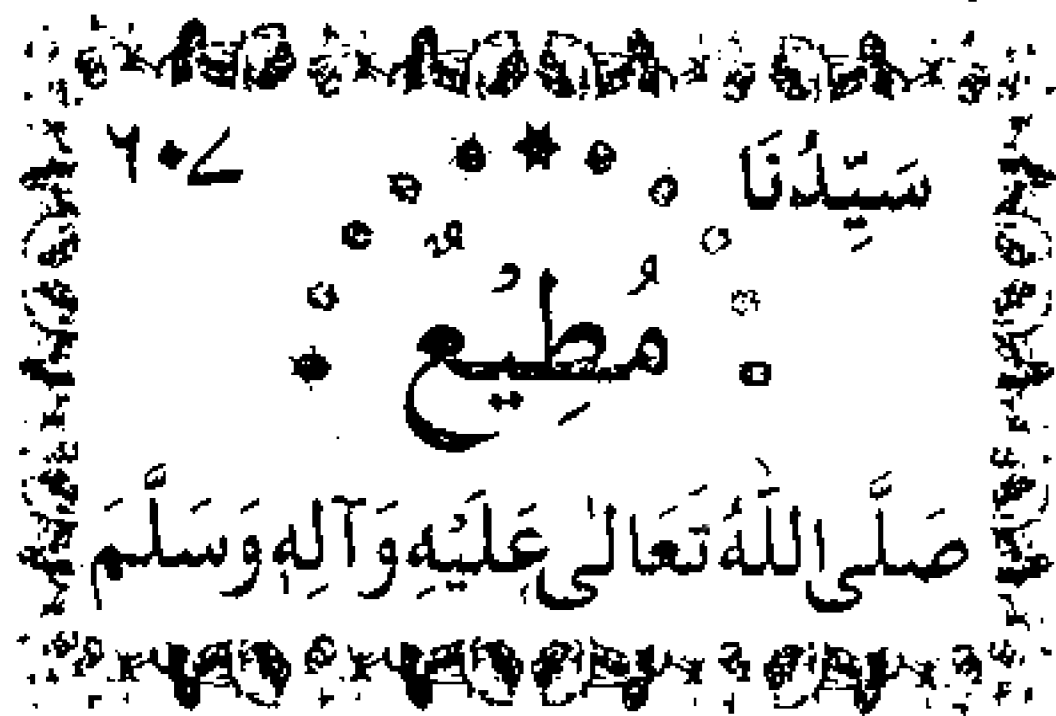 سَيِّدُنَا ٦٠٧
مُطِيْعٌ
صَلَّى اللّٰهُ تَعَالٰى عَلَيْهِ وَآلِهٖ وَسَلَّمَ